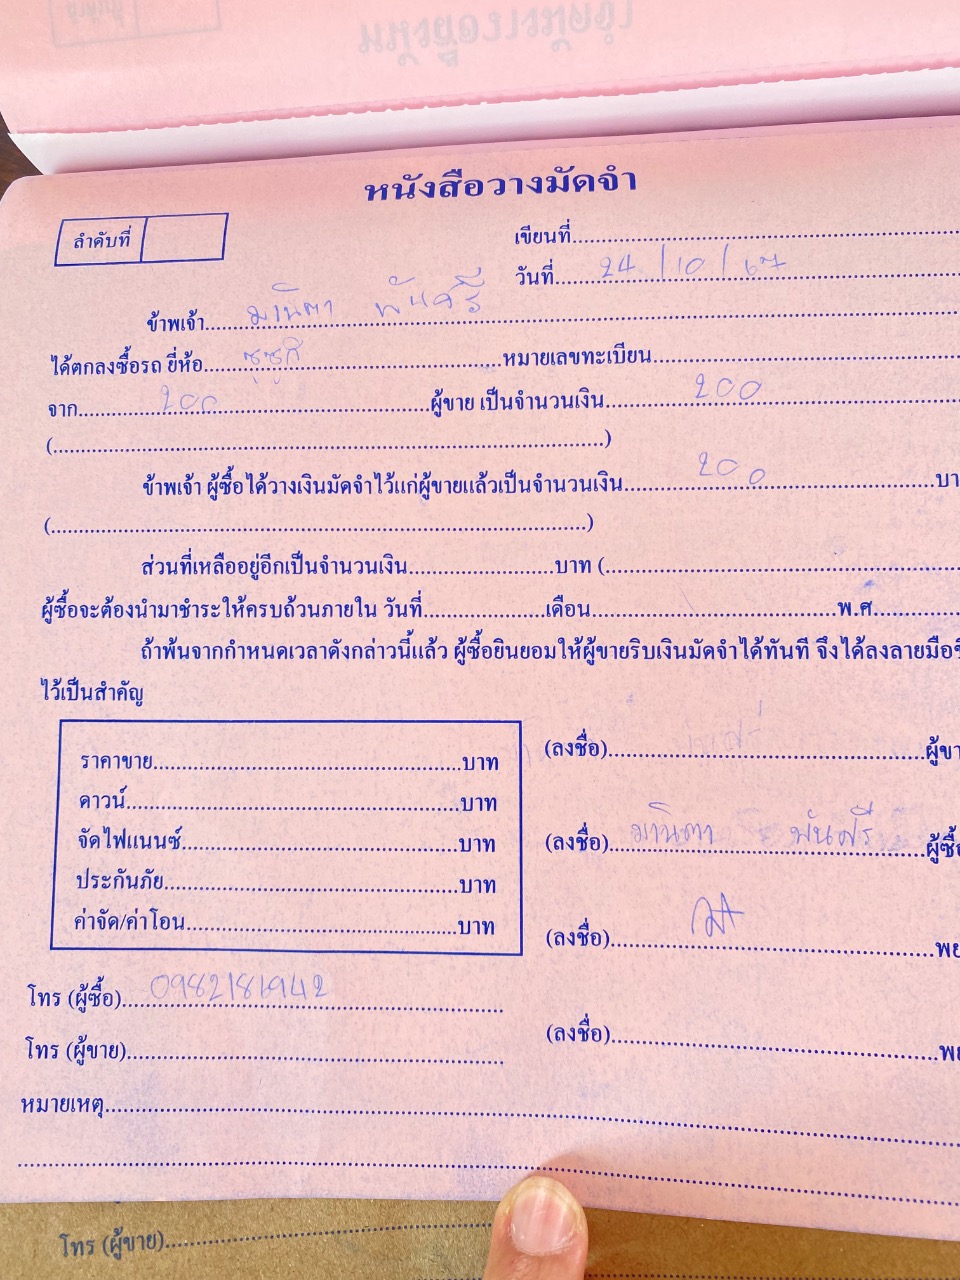 หนังสือวางมัดจำ
ลำดับที่
เขียนที่
วันที่ 24 / 10 / 67
ข้าพเจ้า มานิตา พันศรี
ได้ตกลงซื้อรถ ยี่ห้อ ซูซูกิ หมายเลขทะเบียน
จาก 200 ผู้ขาย เป็นจำนวนเงิน 200
( )
ข้าพเจ้า ผู้ซื้อได้วางเงินมัดจำไว้แก่ผู้ขายแล้วเป็นจำนวนเงิน 200 บา
( )
ส่วนที่เหลืออยู่อีกเป็นจำนวนเงิน บาท (
ผู้ซื้อจะต้องนำมาชำระให้ครบถ้วนภายใน วันที่ เดือน พ.ศ.
ถ้าพ้นจากกำหนดเวลาดังกล่าวนี้แล้ว ผู้ซื้อยินยอมให้ผู้ขายริบเงินมัดจำได้ทันที จึงได้ลงลายมือชื
ไว้เป็นสำคัญ
ราคาขาย บาท
ดาวน์ บาท
จัดไฟแนนซ์ บาท
ประกันภัย บาท
ค่าจัด/ค่าโอน บาท
(ลงชื่อ) ผู้ขา
(ลงชื่อ) มานิตา พันศรี ผู้ซื้
(ลงชื่อ) พย
(ลงชื่อ) พย
โทร (ผู้ซื้อ) 0982181942
โทร (ผู้ขาย)
หมายเหตุ
โทร (ผู้ขาย)